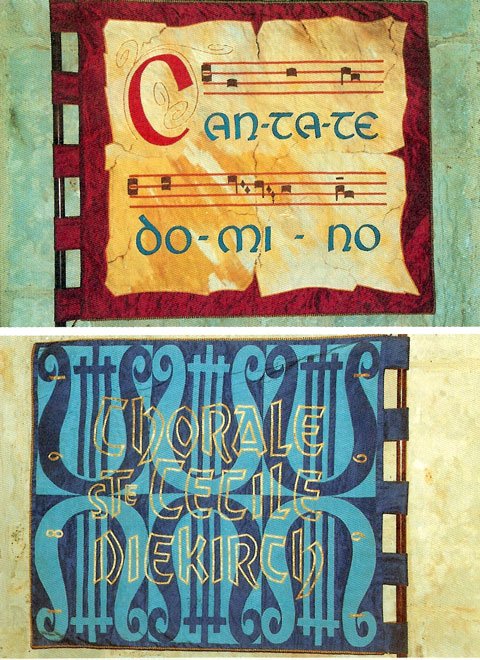 Can-ta-te
do-mi-no
CHORALE
STE CECILE
DIEKIRCH